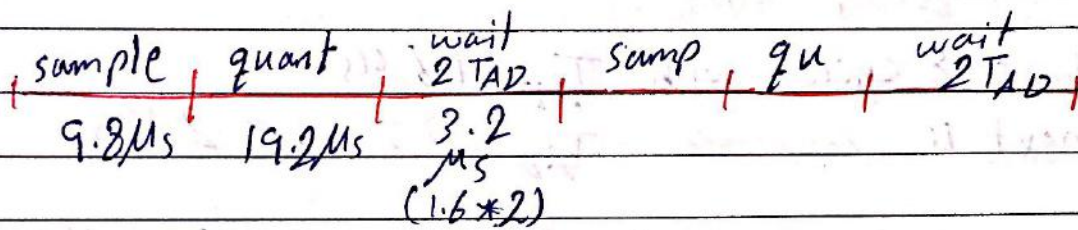 sample quant wait samp qu wait
2 TAD 2 TAD
9.8μs 19.2μs 3.2
μs
(1.6*2)